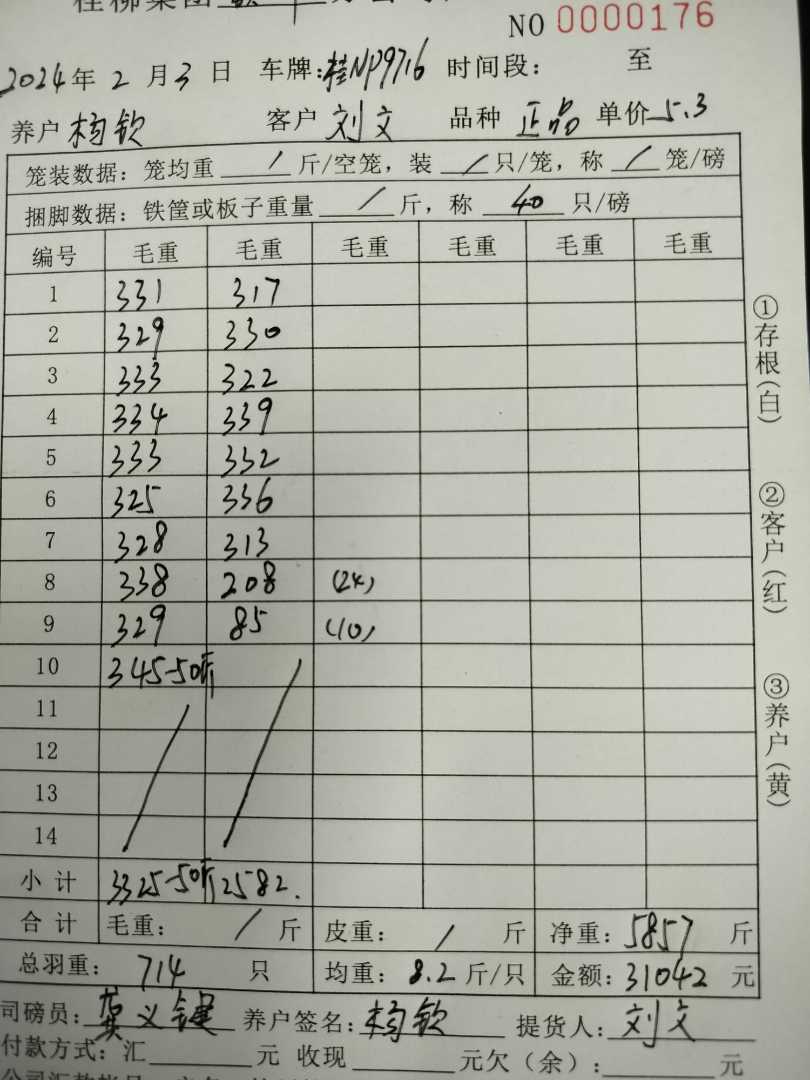 桂柳集团
NO 0000176
2024年2月3日 车牌:桂NP9716 时间段: 至
养户 杨钦 客户 刘文 品种 正品 单价 5.3
笼装数据: 笼均重 / 斤/空笼, 装 / 只/笼, 称 / 笼/磅
捆脚数据: 铁筐或板子重量 / 斤, 称 40 只/磅
编号 毛重 毛重 毛重 毛重 毛重 毛重
1 331 317
2 329 330
3 333 322
4 334 339
5 333 332
6 325 336
7 328 313
8 338 208 (24)
9 329 85 (10)
10 345-50斤
11
12
13
14
小计 3325-50斤 2582.
合计 毛重: / 斤 皮重: / 斤 净重: 5857 斤
总羽重: 714 只 均重: 8.2 斤/只 金额: 31042 元
司磅员: 龚义键 养户签名: 杨钦 提货人: 刘文
付款方式: 汇 元 收现 元欠(余): 元
①存根(白)
②客户(红)
③养户(黄)